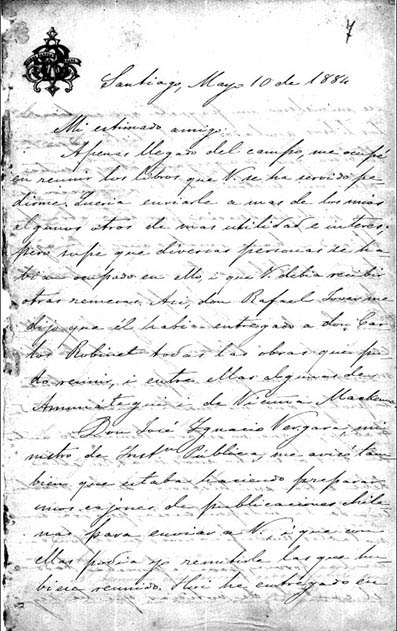 7
Santiago, Mayo 10 de 1884
Mi estimado amigo.
Apenas llegado del campo, me ocupé
en reunir los libros que V. se ha servido pe-
dirme. Queria enviarle a mas de los mios
algunos otros de mas utilidad e interes,
pero supe que diversas personas se ha-
bian ocupado en ello, i que V. debia recibir
otras remesas. Asi, don Rafael Jover me
dijo que él habia entregado a don Car-
los Robinet todas las obras que pu-
do reunir, i entre ellas algunas de
Amunátegui i de Vicuña Mackenna.
Don José Ignacio Vergara, mi-
nistro de Instn Publica, me avisó tam-
bien que estaba haciendo preparar
unos cajones de publicaciones chile-
nas para enviar a V. i que con
ellas podia yo remitirle las que hu-
biera reunido. Hoi he entregado en